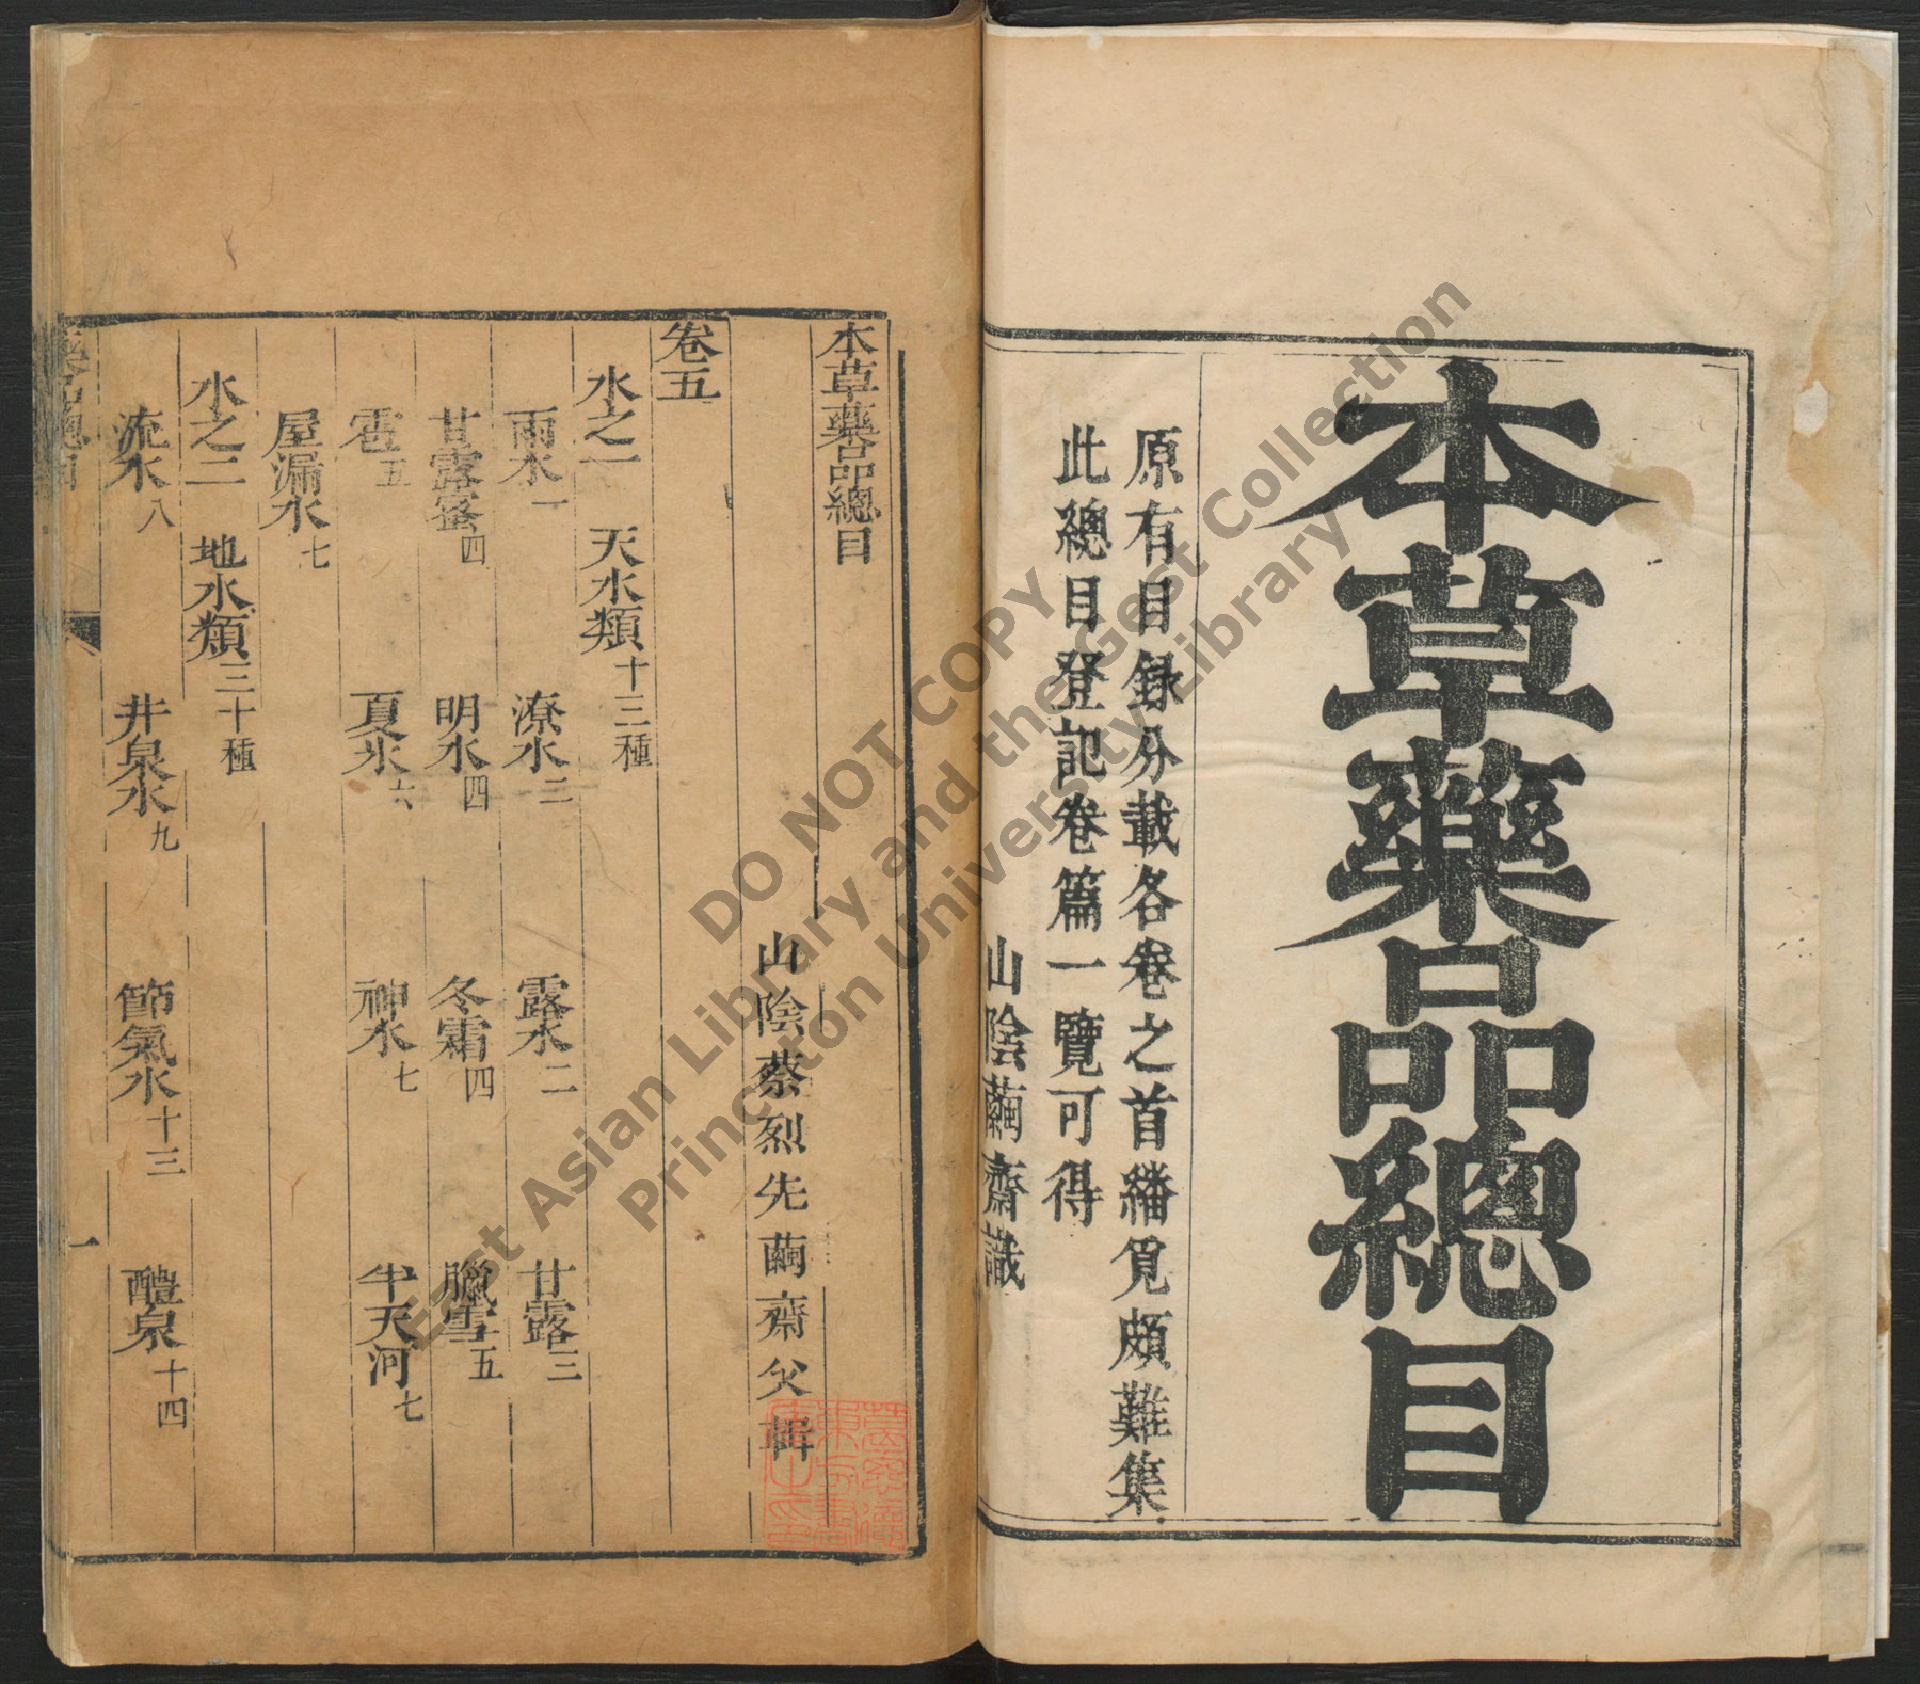 本草藥品總目
原有目録分載各卷之首繙覓頗難集
此總目登記卷篇一覽可得
山陰繭齋識
本草藥品總目
山陰蔡烈先繭齋父輯
卷五
水之一 天水類十三種
雨水一 潦水二 露水二 甘露三
甘露蜜四 明水四 冬霜四 臘雪五
雹五 夏氷六 神水七 半天河七
屋漏水七
水之二 地水類三十種
流水八 井泉水九 節氣水十三 醴泉十四
藥品總目 一
DO NOT COPY
East Asian Library and the Gest Collection
Princeton University Library